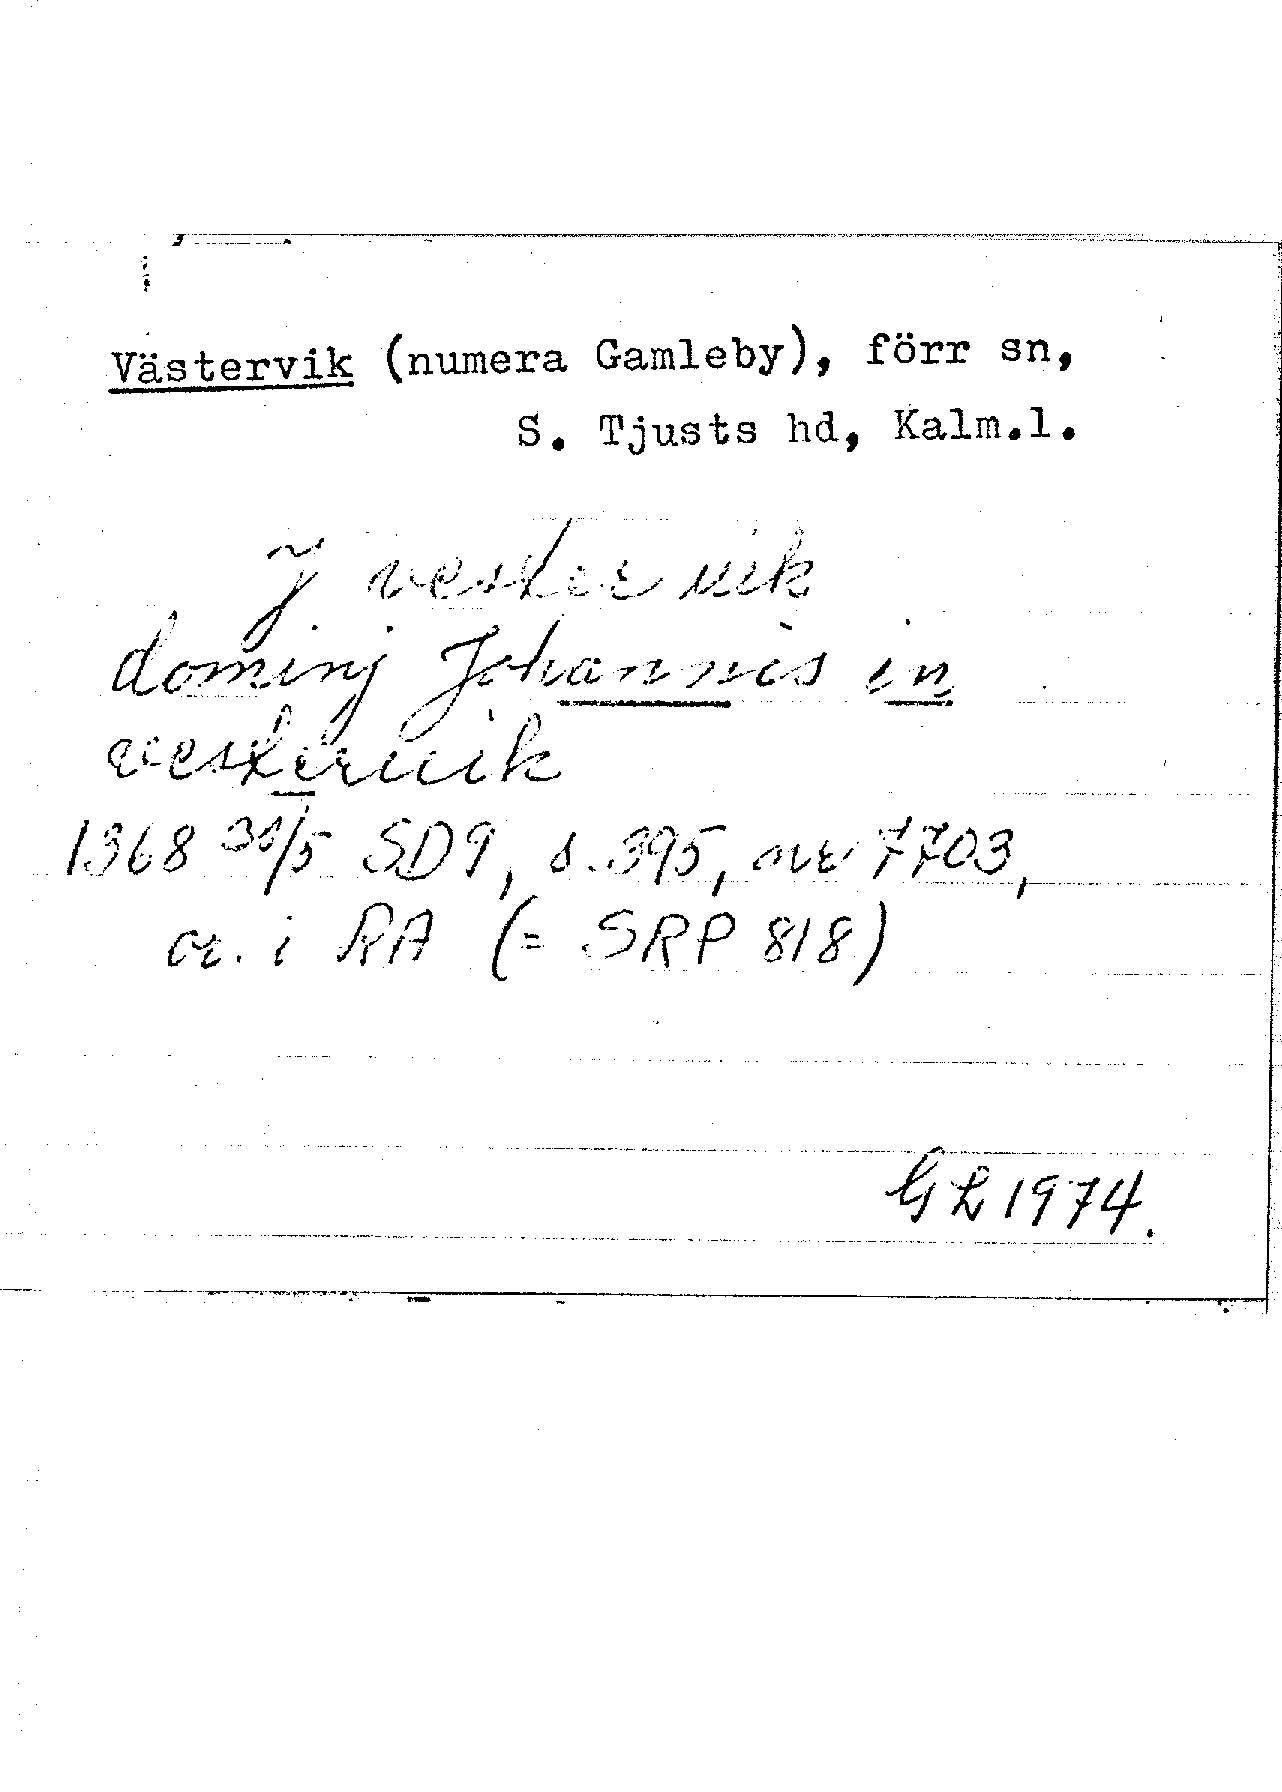 Västervik (numera Gamleby), förr sn,
S. Tjusts hd, Kalm.l.
J vester uik
dominj Johannis in
vesteruik
1368 30/5 SD9, s.395, nr 7703,
or. i RA (= SRP 818)
GL 1974.